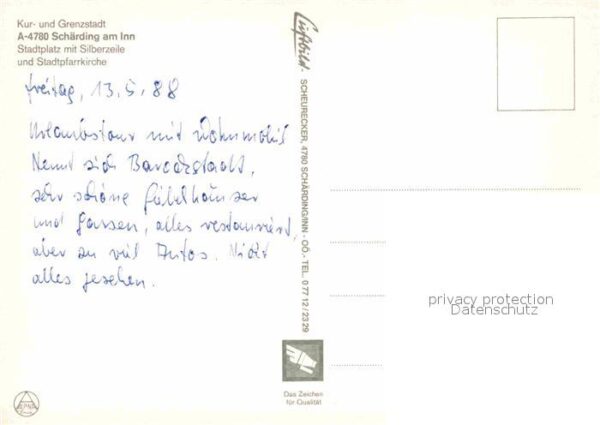 Kur- und Grenzstadt
A-4780 Schärding am Inn
Stadtplatz mit Silberzeile
und Stadtpfarrkirche
Freitag, 13.5.88
Urlaubstour mit Wohnmobil
Nennt sich Barockstadt,
sehr schöne Giebelhäuser
und Gassen, alles restauriert,
aber zu viel Autos. Nicht
alles gesehen.
Luftbild - SCHEURECKER, 4780 SCHÄRDING/INN - OÖ.- TEL. 0 77 12 / 23 29
Das Zeichen
für Qualität
privacy protection
Datenschutz